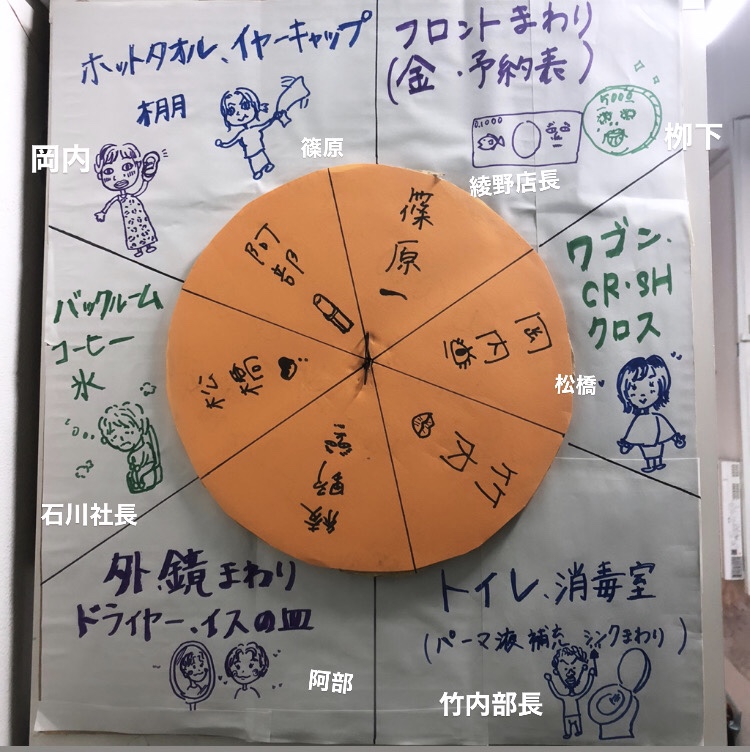 ホットタオル、イヤーキャップ
棚
岡内
篠原
フロントまわり
(金・予約表)
0.1000
500点
綾野店長
栁下
ワゴン、
CR・SH
クロス
松橋
バックルーム
コーヒー
氷
石川社長
外、鏡まわり
ドライヤー、イスの皿
阿部
トイレ、消毒室
(パーマ液補充 シンクまわり)
竹内部長
篠原
岡内
竹内
綾野
松橋
阿部